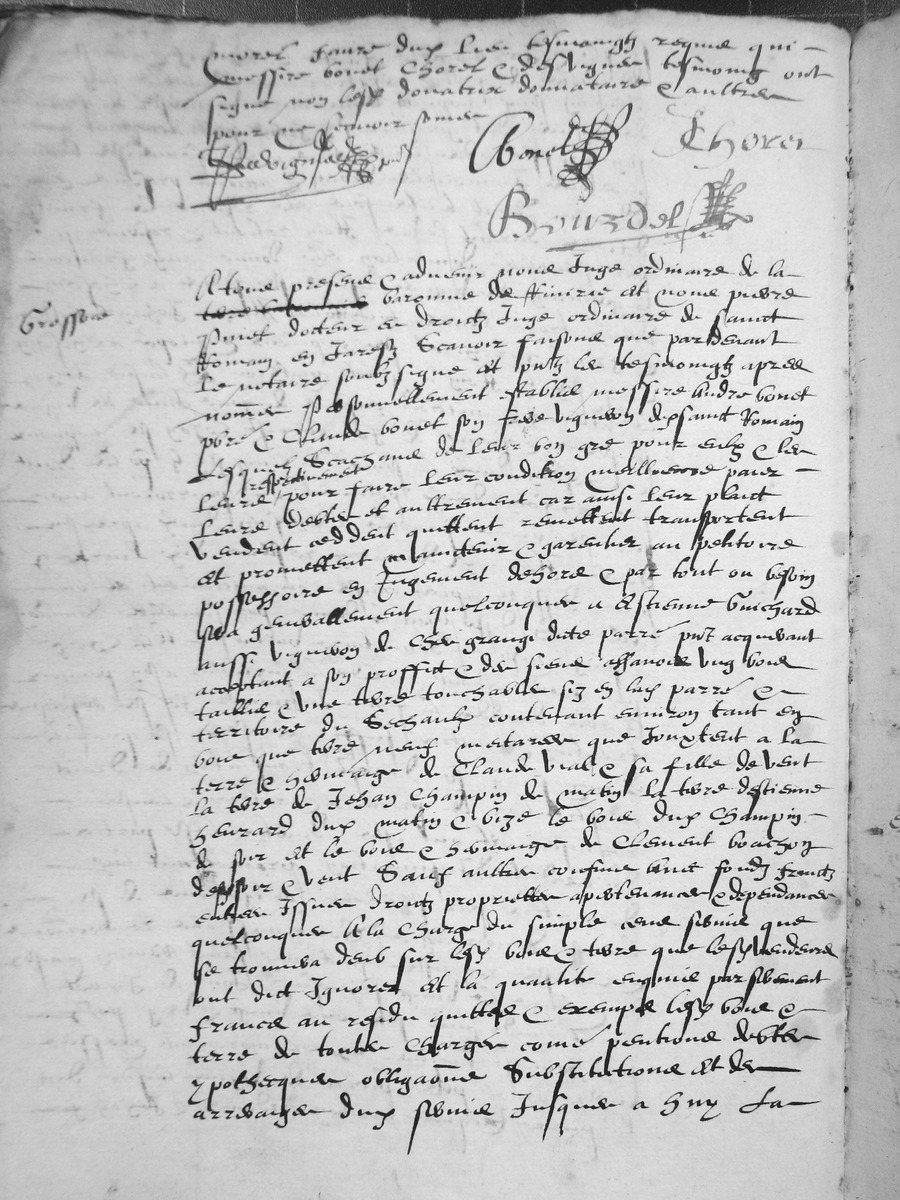 morel faure dud lieu tesmoingtz requis qui
messire bonet Chorel & desvignes tesmoing ont
signe non lesd donatrix donnataire & aultres
pour ne scavoir
Bonet
Chorel
Bourdel
Grossoie
A tous presens & advenir nous Juge ordinaire de la
baronnie de et nous pierre
pinet docteur es droictz Juge ordinaire de sainct
Romain en Jarestz Scavoir faisons que pardevant
le notaire soubz signe et pntz les tesmoingtz apres
nommes personnellement establis messire Andre bonet
pbre & Claude bonet son frere vigneron de sainct Romain
Lesquelz Scachans de leur bon gre pour eulx & les
leurs respectivement pour faire leur condition meilleure paier
leurs debtes et aultrement car ainsi leur plaict
vendent ceddent quittent remettent transportent
et promettent maintenir & garentir au petitoire
possessoire en Jugement dehors & par tout ou besoin
sera generallement quelconques a Estienne Guichard
aussi vigneron de Chez grangi dicte parre pnt acquerant
acceptant a son proffict & des siens assavoir ung bois
taillis & une terre touchables siz en lad parre &
territoire du Sechaulx contenant environ tant en
bois que terre neuf meterees que Jouxtent a la
terre & hermaige de Claude vial & sa fille de vent
la terre de Jehan Champin de matin la terre destienne
heurard dud matin & bize le bois dud Champin
de soir et le bois & hermaige de Clement boachon
desd soir & vent Sauf aultres confins avec fondz fruictz
entrees Issues droictz proprietes apertenances & dependances
quelconques A la Charge du simple cens servis que
se trouvera deub sur lesd bois & terre que lesd vendeurs
ont dict Ignorer et la quantite par serement
francs au residu quittes & exemps lesd bois &
terre de toutes Charges comme pentions debtes
ypothecques obligaõns Substitutions et des
arreraiges dud servis Jusques a huy La